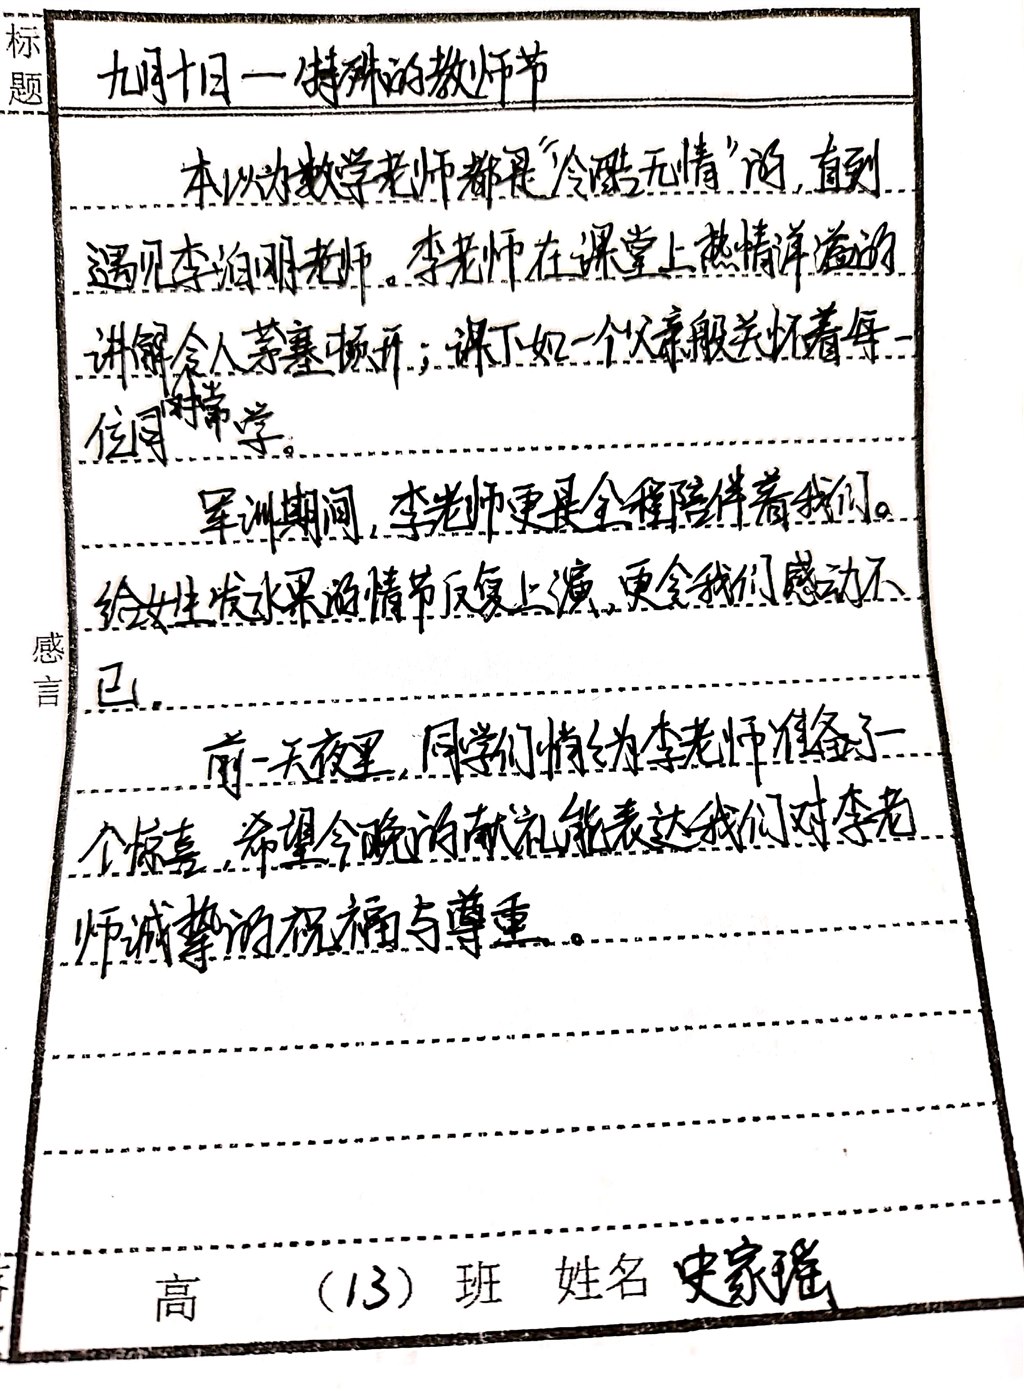 标题
九月十日—特殊的教师节
本以为数学老师都是“冷酷无情”的，直到
遇见李泊明老师。李老师在课堂上热情洋溢的
讲解令人茅塞顿开；课下如一个父亲般关怀着每一
时常
位同学。
军训期间，李老师更是全程陪伴着我们。
给女生发水果的情节反复上演，更令我们感动不
已。
感言
前一天夜里，同学们悄悄为李老师准备了一
个惊喜，希望今晚的献礼能表达我们对李老
师诚挚的祝福与尊重。
高 （13）班 姓名 史家瑶